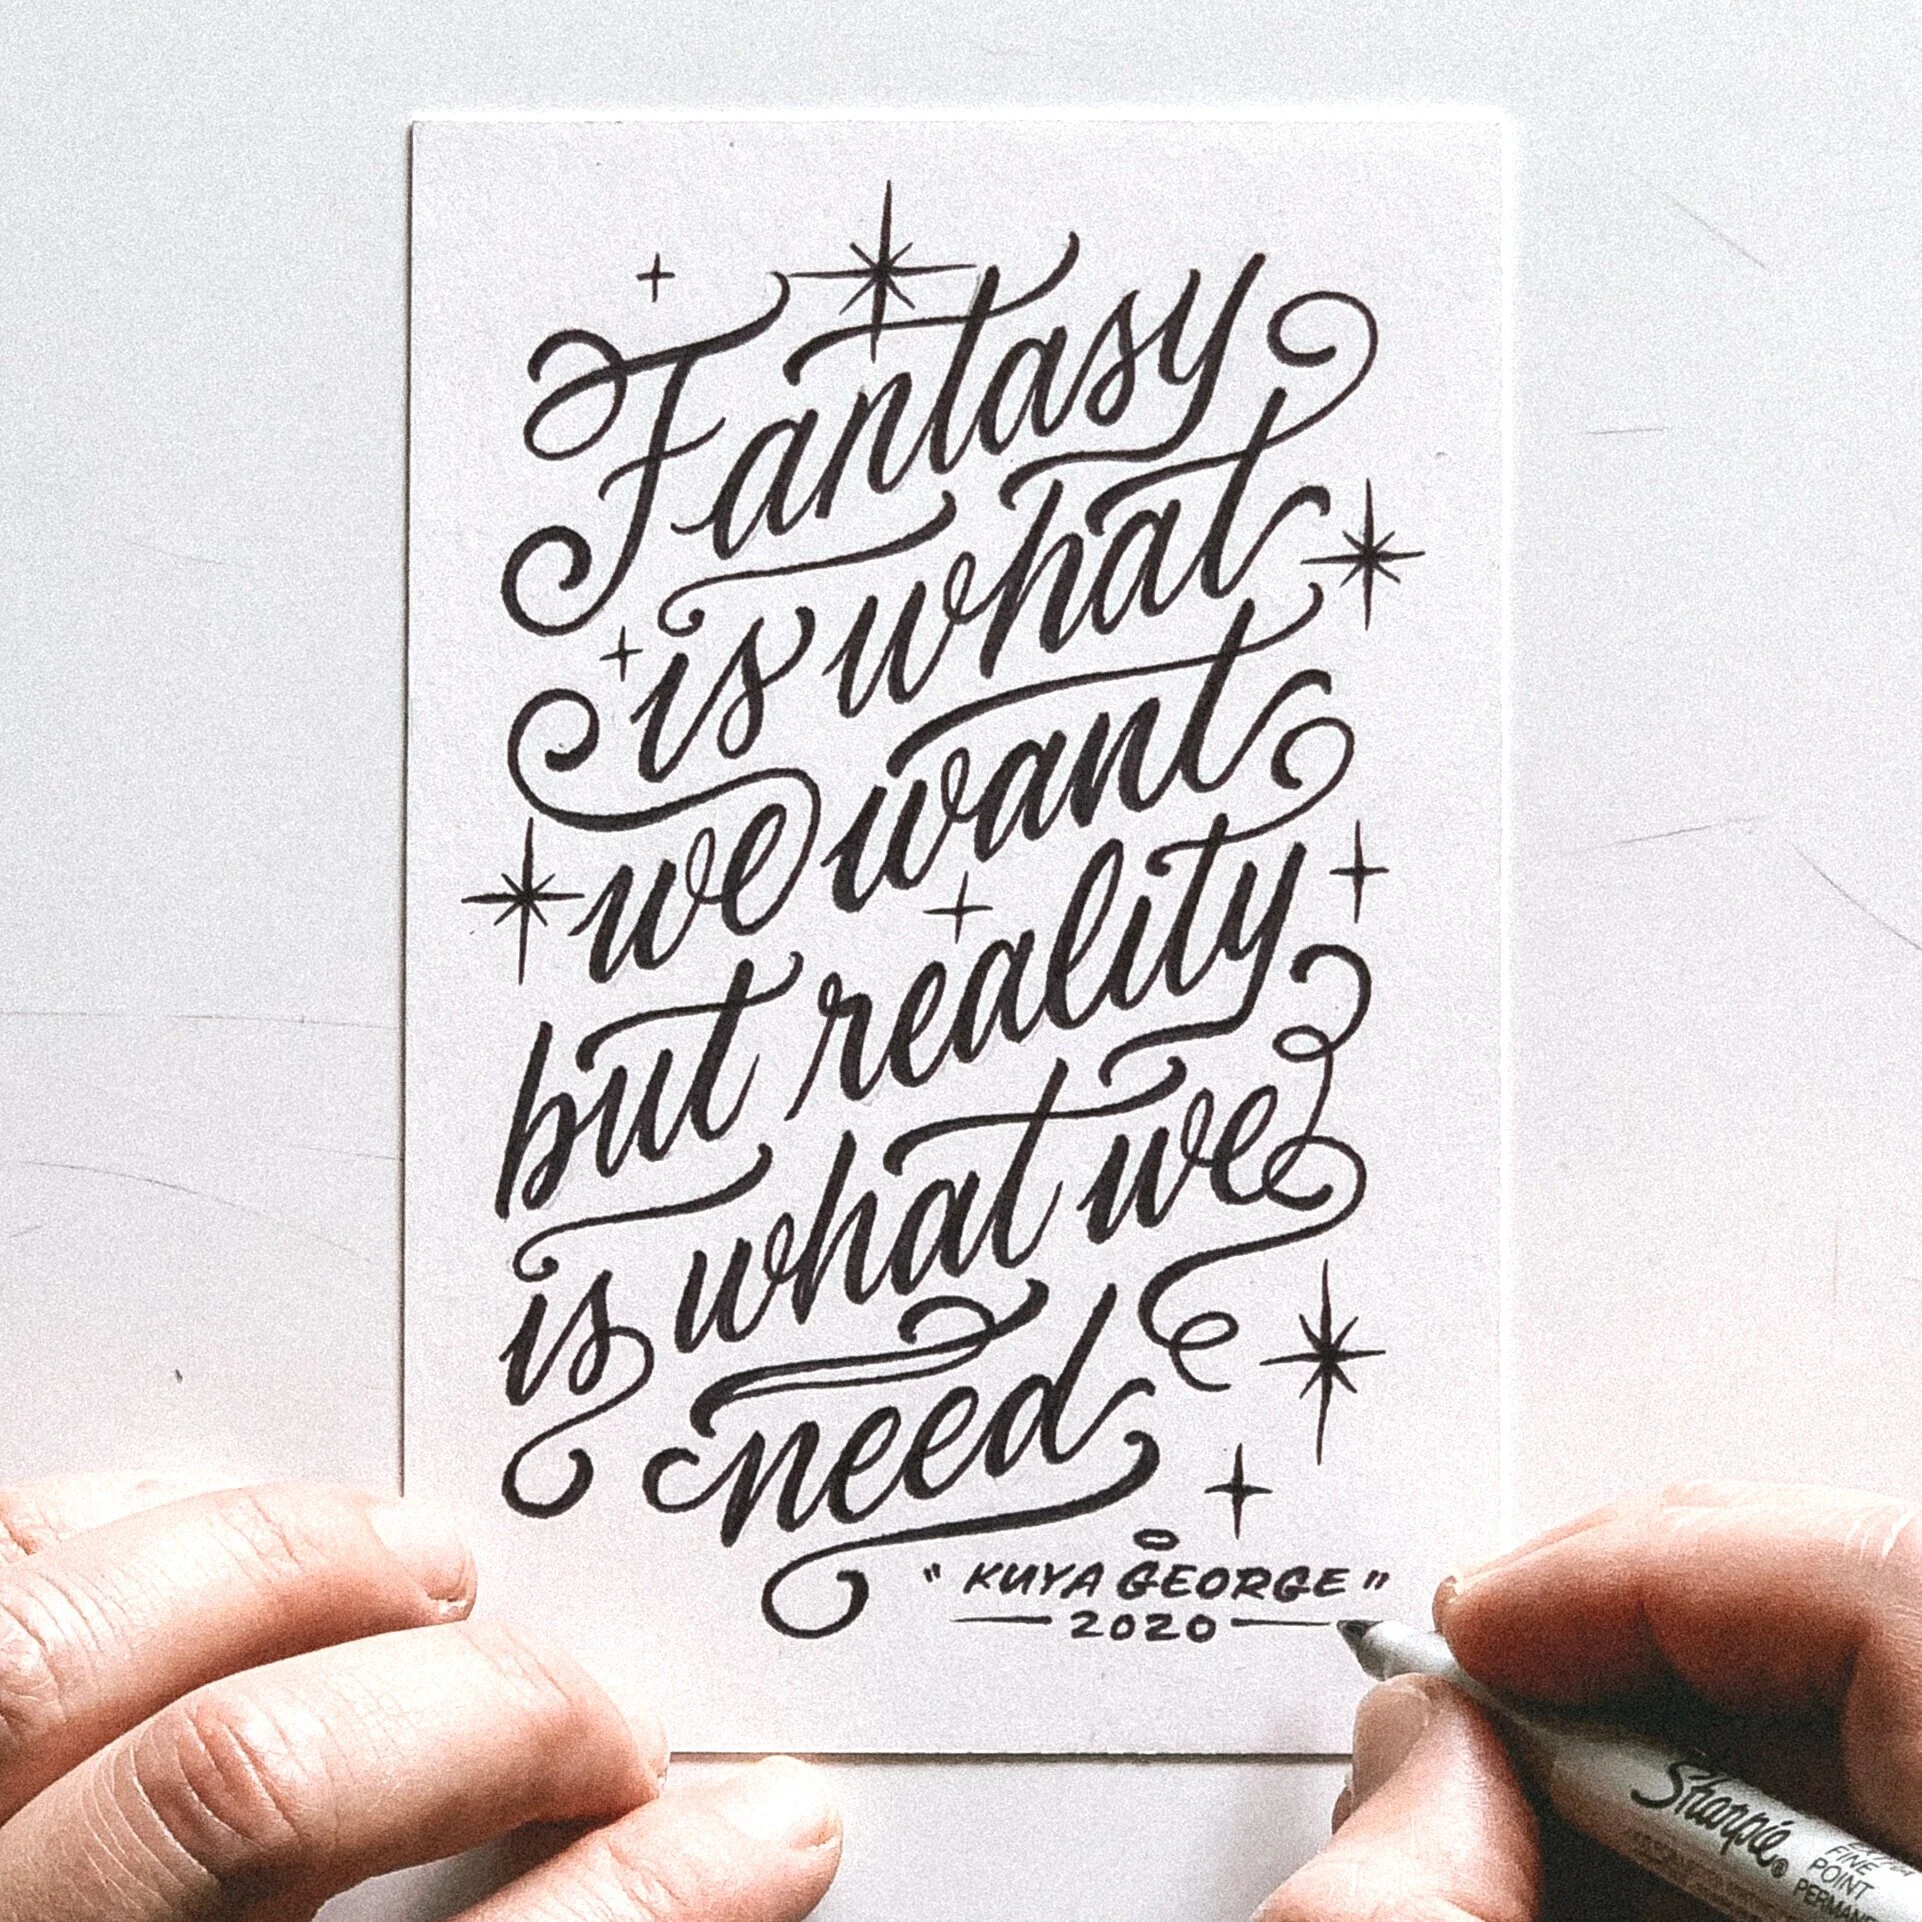 Fantasy
is what
we want
but reality
is what we
need
"KUYA GEORGE"
2020
Sharpie®
FINE
POINT